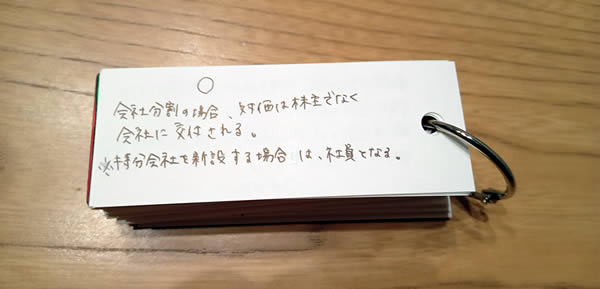 ○
会社分割の場合、対価は株主でなく
会社に交付される。
※持分会社を新設する場合は、社員となる。